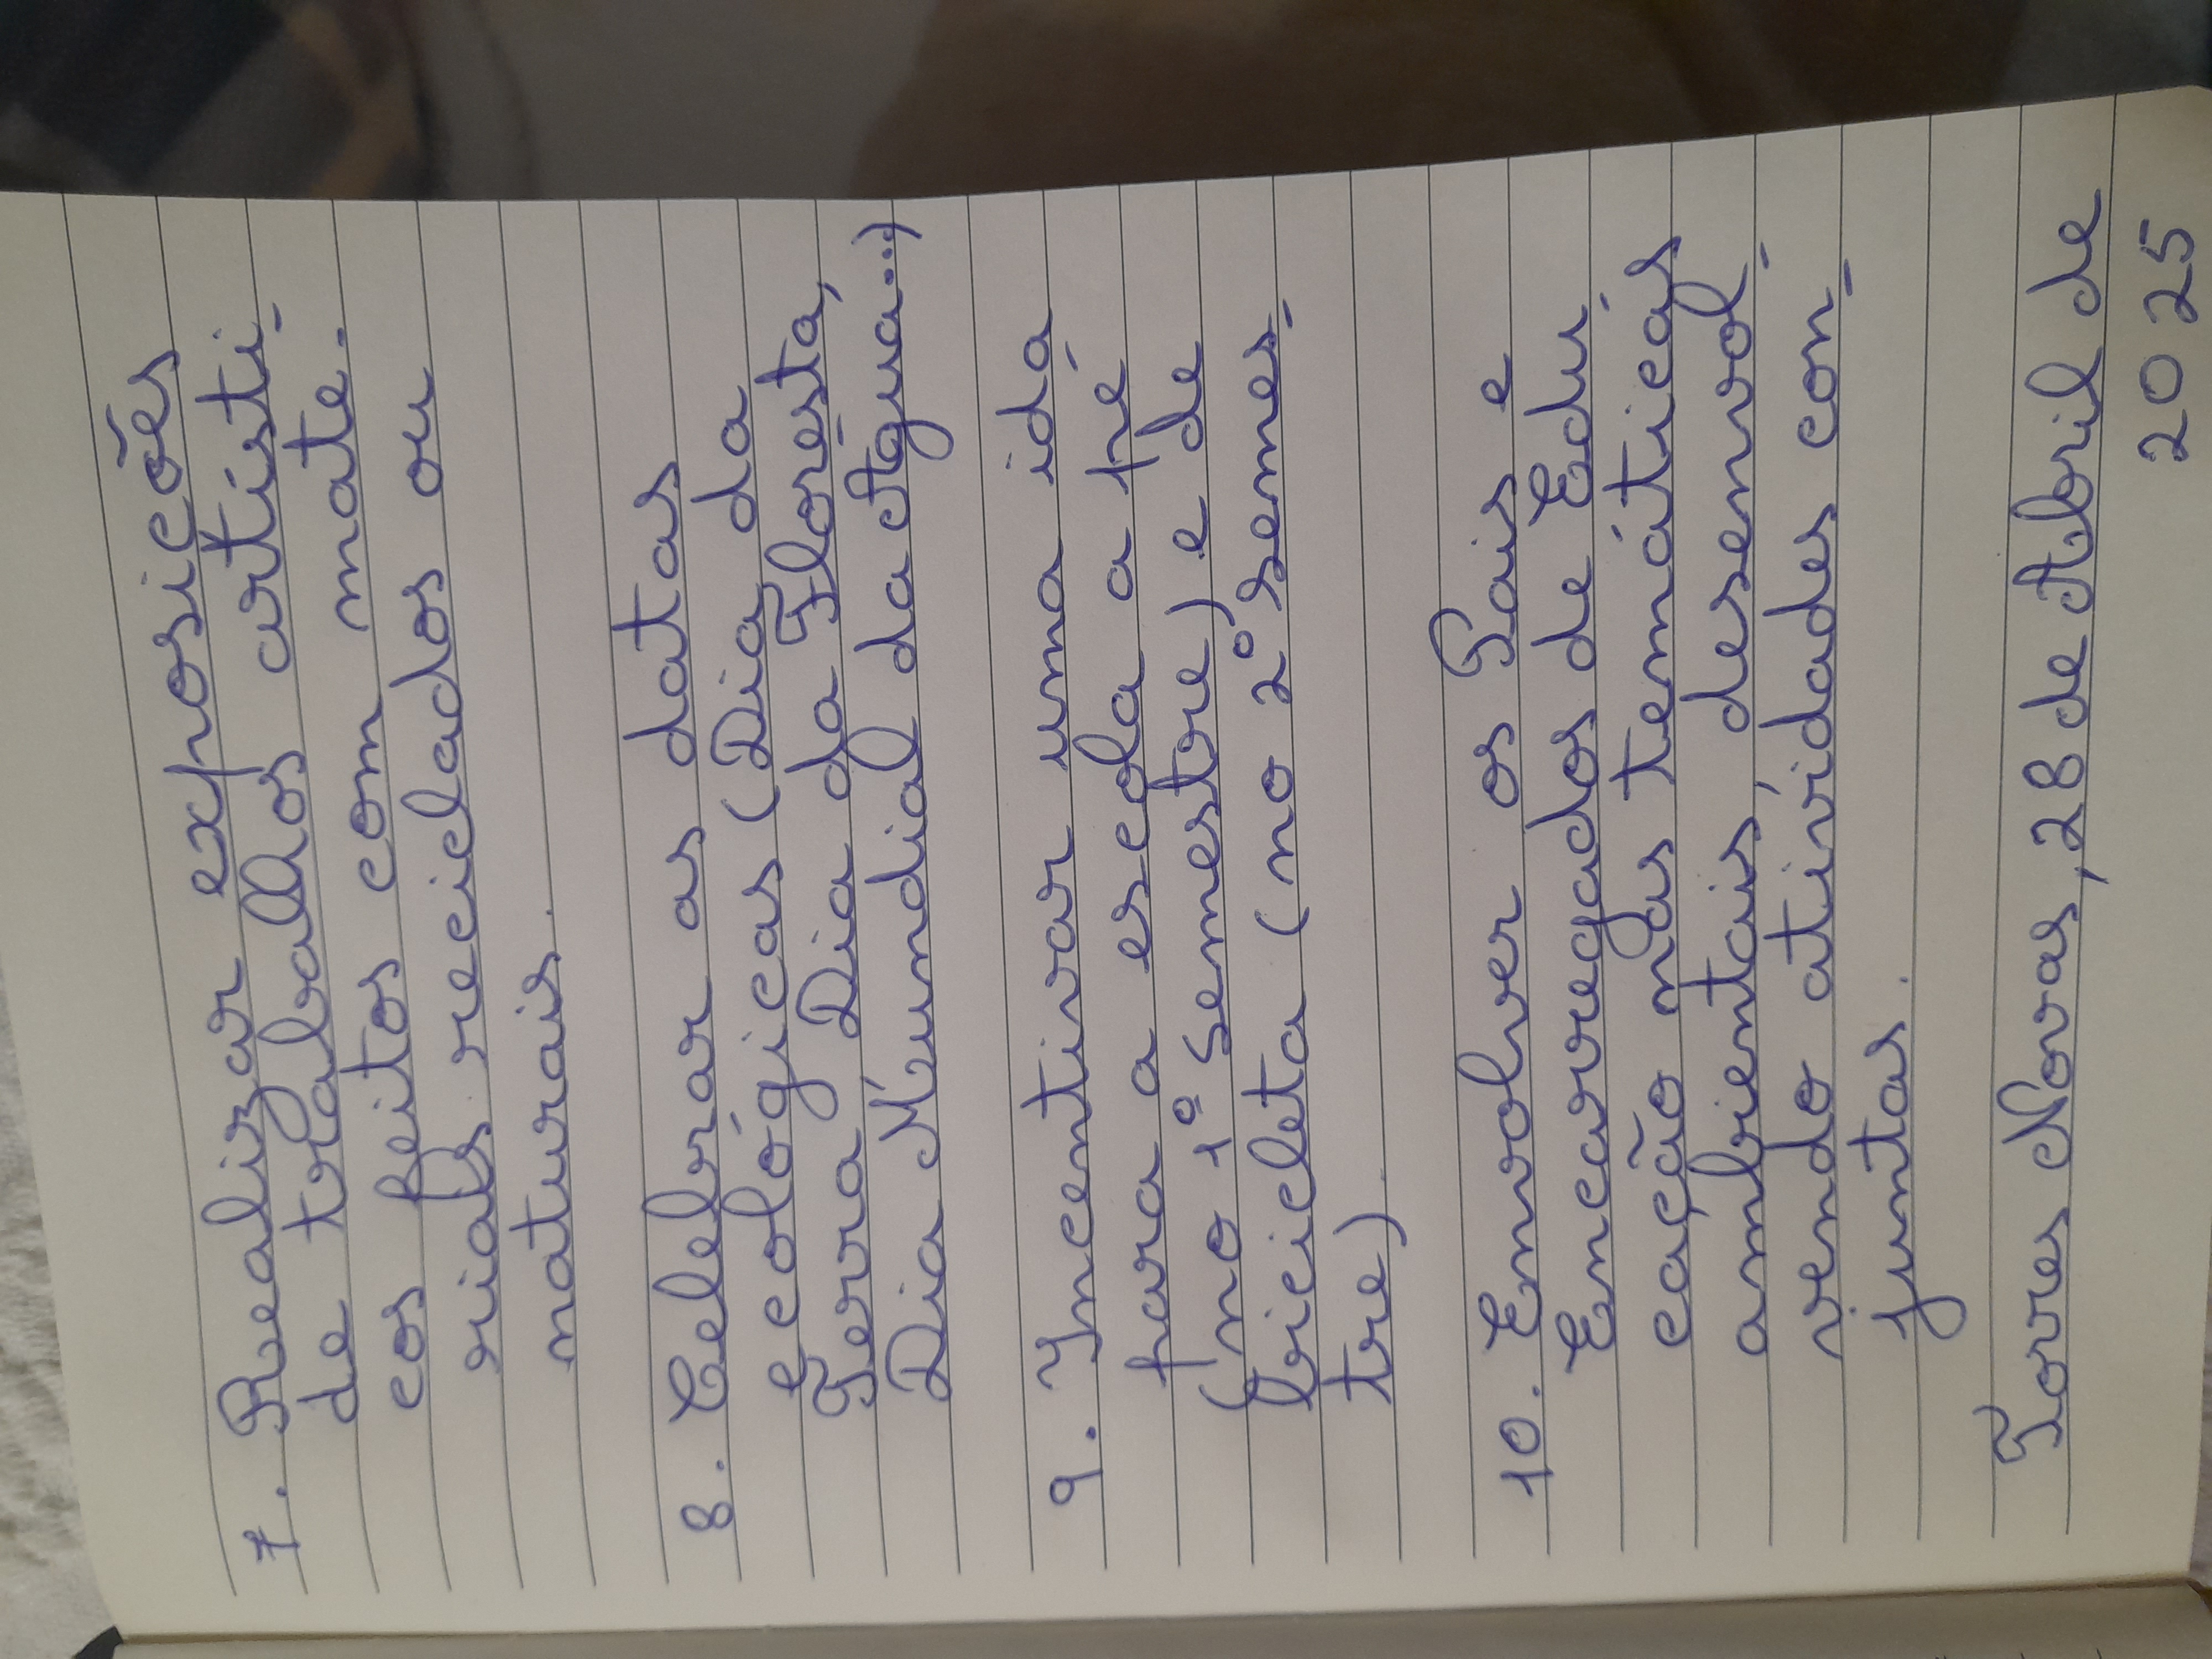 7. Realizar exposições
de trabalhos artísti-
cos feitos com mate-
riais reciclados ou
naturais.
8. Celebrar as datas
Ecológicas (Dia da
Terra, Dia da Floresta,
Dia Mundial da Água...)
9. Incentivar uma ida
para a escola a pé
(no 1º semestre) e de
bicicleta (no 2º semes-
tre)
10. Envolver os Pais e
Encarregados de Edu-
cação nas temáticas
ambientais, desenvol-
vendo atividades con-
juntas.
Torres Novas, 28 de Abril de
2025